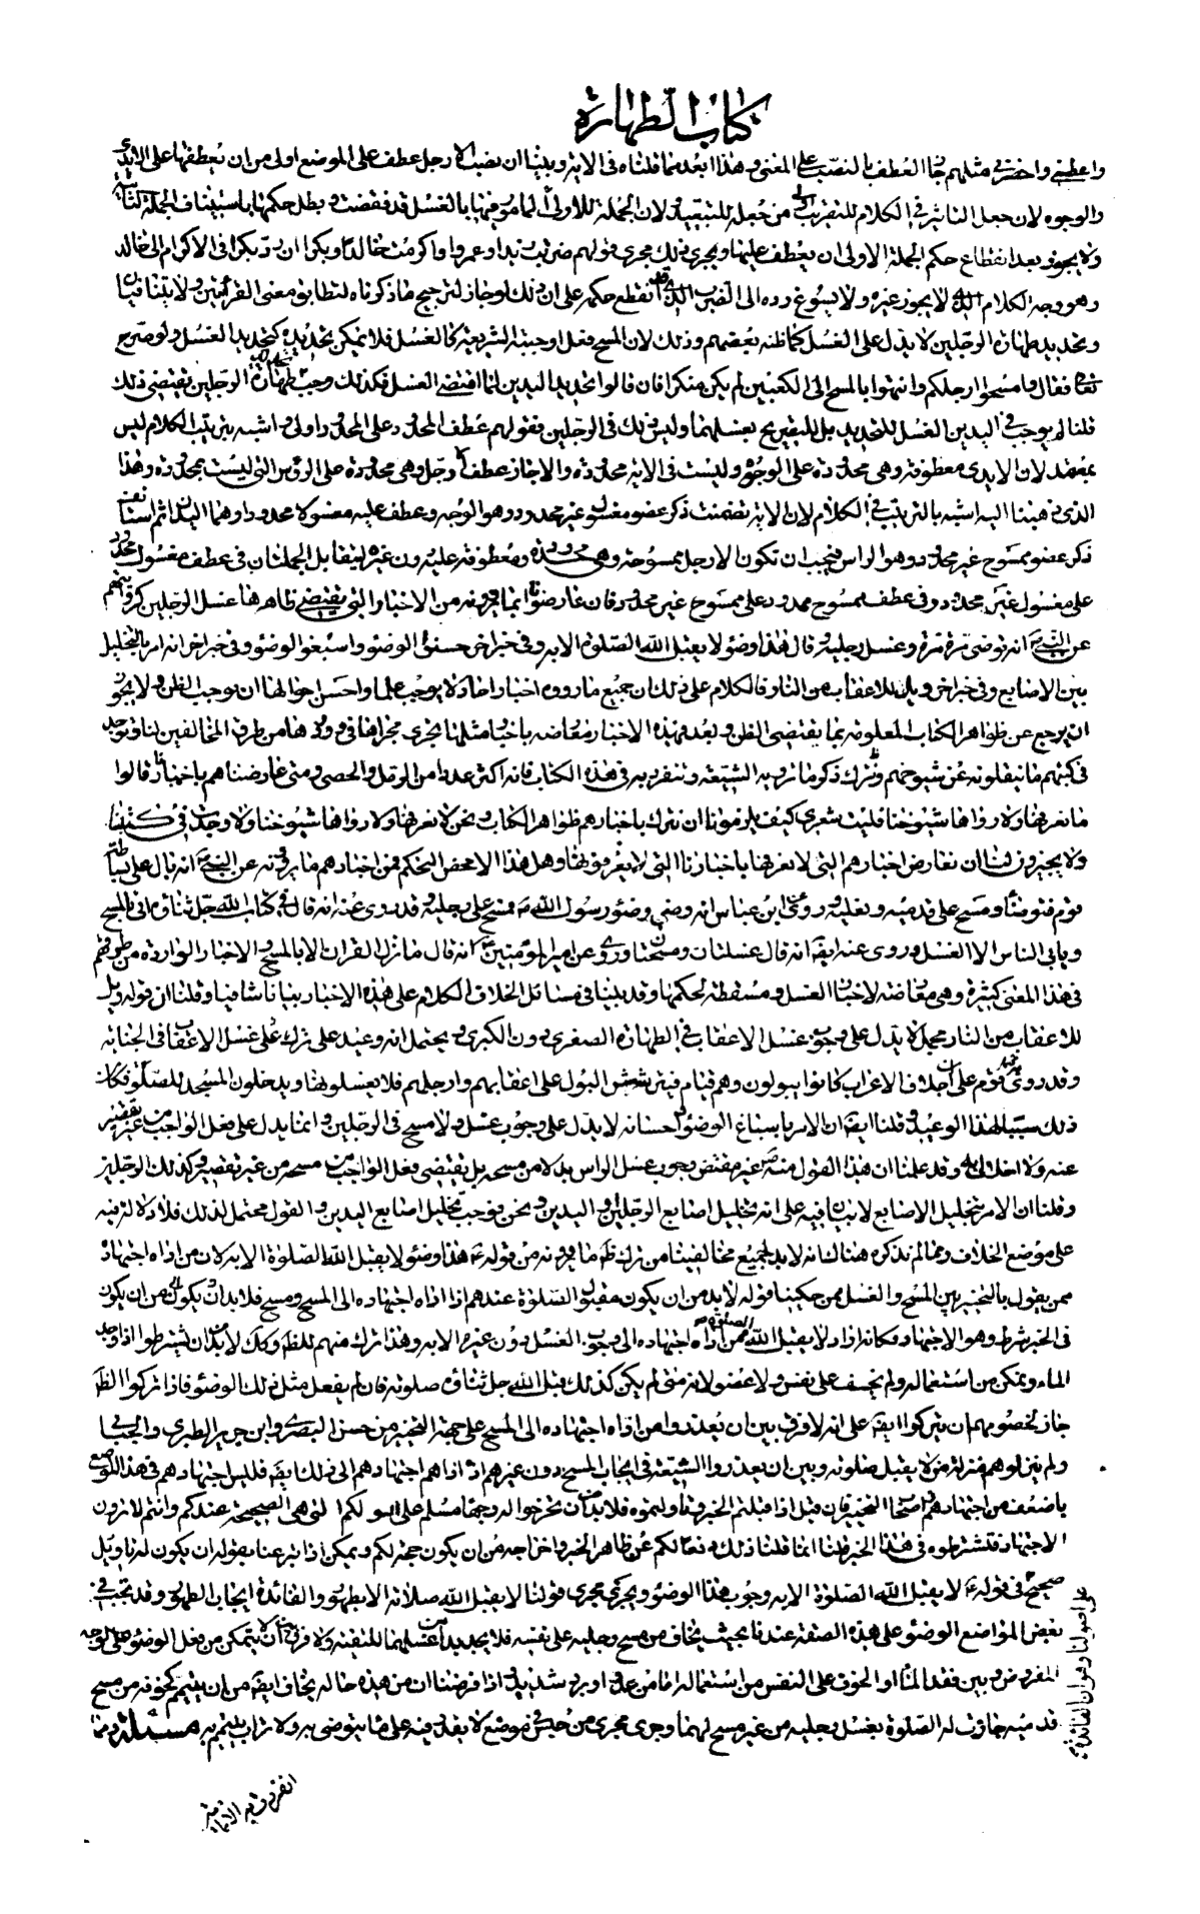 كتاب الطهارة
واعطني واحضرني مثلهم جاز العطف بالنصب على المعنى وهذا ابعد مما قلناه في الاية وبينا ان نصب الارجل عطفا على الموضع اولى من ان نعطفها على الايدي
والوجوه لان جعل التاثير في الكلام للقريب اولى من جعله للبعيد ولان الجملة الاولى المامور فيها بالغسل قد نقضت وبطل حكمها باستيناف الجملة الثانية
ولا يجوز بعد انقطاع حكم الجملة الاولى ان يعطف عليها ويجري ذلك مجرى قولهم ضربت زيدا وعمروا واكرمت خالدا وبكرا ان رد بكرا في الاكرام الى خالد
وهو وجه الكلام الذي لا يجوز غيره ولا يسوغ رده الى الضرب الذي قد انقطع حكمه على ان ذلك لو جاز لترجح ما ذكرناه لتطابق معنى القرائتين ولا يتنافيان
وتحديد طهارة الرجلين لا يدل على الغسل كما ظنه بعضهم وذلك لان المسح فعل اوجبته الشريعة كالغسل فلا ينكر تحديده كتحديد الغسل ولو صرح
تعالى فقال وامسحوا ارجلكم وانتهوا بالمسح الى الكعبين لم يكن منكرا فان قالوا تحديد اليدين لما اقتضى الغسل فكذلك وجب تحديد طهارة الرجلين يقتضي ذلك
قلنا لم يوجب في اليدين الغسل للتحديد بل للتصريح بغسلهما وليس ذلك في الرجلين فقولهم عطف المحدود على المحدود اولى واشبه بترتيب الكلام ليس
بمعتمد لان الايدي معطوفة وهي محدودة على الوجوه وليست في الاية محدودة والا جاز عطف الارجل وهي محدودة على الرؤس التي ليست بمحدودة وهذا
الذي ذهبنا اليه اشبه بالترتيب في الكلام لان الاية تضمنت ذكر عضو مغسول غير محدود وهو الوجه وعطف عليه مغسولا محدودا وهما اليدان ثم استانف
ذكر عضو ممسوح غير محدود وهو الراس فيجب ان تكون الارجل ممسوحة وهي محدودة ومعطوفة عليه دون غيره ليتقابل الجملتان في عطف مغسول محدود
على مغسول غير محدود وفي عطف ممسوح محدود على ممسوح غير محدود فان عارضوا بما يروونه من الاخبار التي يقتضي ظاهرها غسل الرجلين كروايتهم
عن النبي انه توضى مرة مرة وغسل رجليه وقال هذا وضوء لا يقبل الله الصلوة الا به وفي خبر اخر حسنوا الوضوء واسبغوا الوضوء وفي خبر اخر انه امر بالتخليل
بين الاصابع وفي خبر اخر ويل للاعقاب من النار فالكلام على ذلك ان جميع ما رووه اخبار احاد لا يوجب علما واحسن احوالها ان توجب الظن ولا يجوز
ان يرجع عن ظواهر الكتاب المعلومة بما يقتضي الظن وبعد فهذه الاخبار معارضة باخبار مثلها تجري مجراها في ورودها من طرق المخالفين لنا وتوجد
في كتبهم ما ينقلونه عن شيوخهم ونترك ذكر ما ترويه الشيعة وتنفرد به في هذه الكتاب فانه اكثر عددا من الرمل والحصى ومتى عارضناهم باخبارنا قالوا
ما نعرفها ولا رواها شيوخنا فليت شعري كيف يلزمونا ان نترك باخبارهم ظواهر الكتاب ونحن لا نعرفها ولا رواها شيوخنا ولا وجدت في كتبنا
ولا يجيزون لنا ان نعارض اخبارهم التي لا نعرفها باخبارنا التي لا يعرفونها وهل هذا الا محض التحكم فمن اخبارهم ما يروونه عن النبي انه بال على سباطة
قوم فتوضا ومسح على قدميه ونعليه وروى ابن عباس انه وصف وضوء رسول الله فمسح على رجليه وقد روى عنه انه قال في كتاب الله جل ثناؤه ما في المسح
ويابى الناس الا الغسل وروى عنه ايضا انه قال غسلتان ومسحتان وروى عن امير المؤمنين انه قال ما نزل القران الا بالمسح والاخبار الواردة من طرقهم
في هذا المعنى كثيرة وهي معارضة لاخبار الغسل ومسقطة لحكمها وقد بينا في مسائل الخلاف الكلام على هذه الاخبار بيانا شافيا وقلنا ان قوله ويل
للاعقاب من النار مجمل لا يدل على وجوب غسل الاعقاب في الطهارة الصغرى دون الكبرى ويحتمل انه وعيد على ترك غسل الاعقاب في الجنابة
وقد روى قوم ان اجلاف الاعراب كانوا يبولون وهم قيام فيترشش البول على اعقابهم وارجلهم فلا يغسلونها ويدخلون المسجد للصلوة فكان
ذلك سببا لهذا الوعيد وقلنا ايضا ان الامر باسباغ الوضوء واحسانه لا يدل على وجوب غسل ولا مسح في الرجلين وانما يدل على فعل الواجب من غير تقصير
عنه ولا اخلال به وقد علمنا ان هذا القول منه غير مقتض وجوب غسل الراس بدلا من مسحه بل يقتضي فعل الواجب من مسحه من غير تقصير وكذلك الرجلين
وقلنا ان الامر بتخليل الاصابع لا بيان فيه على انه تخليل اصابع الرجلين او اليدين ونحن نوجب تخليل اصابع اليدين والقول محتمل لذلك فلا دلالة فيه
على موضع الخلاف ومما لم نذكره هناك انه لا بد لجميع مخالفينا من ترك ظاهر ما يروونه من قوله هذا وضوء لا يقبل الله الصلوة الا به لان من اداه اجتهاده
ممن يقول بالتخيير بين المسح والغسل ممن حكينا قوله لا بد من ان يكون مقبول الصلوة عندهم اذا اداه اجتهاده الى المسح ومسح فلا بد من ان يكون
في الخبر شرط وهو الاجتهاد فكانه اراد لا يقبل الله الصلوة ممن اداه اجتهاده الى وجوب الغسل دون غيره الا به وهذا ترك منهم للظاهر وكذلك لا بد ان يشترطوا اذا وجد
الماء وتمكن من استعماله ولم يخف على نفس ولا عضو لانه متى لم يكن كذلك قبل الله جل ثناؤه صلوته فان لم يفعل مثل ذلك الوضوء فاذا تركوا الظاهر
جاز لخصومهم ان يتركوا ايضا على انه لا فرق بين ان يعذروا من اداه اجتهاده الى المسح على جهة التخيير من حسن البصري وابن جرير الطبري والجبائي
ولم ينزلوهم منزلة من لا يقبل صلوته وبين ان يعذروا الشيعة في ايجاب المسح دون غيره اذا اداهم اجتهادهم الى ذلك ايضا فليس اجتهادهم في هذا الموضع
باضعف من اجتهاد اصحاب التخيير فان قيل اذا قبلتم الخبر فلا بد من ان تخرجوا له وجها مسلم على اصولكم التي هي الصحيحة عندكم وانتم لا ترون
الاجتهاد فتشترطوه في هذا الخبر قلنا انما قلنا ذلك دفعا لكم عن ظاهر الخبر واخراجه من ان يكون حجة لكم ويمكن اذا تبرعنا بقبوله ان يكون له تاويل
صحيح في قوله لا يقبل الله الصلوة الا به وجوب هذا الوضوء ويجري مجرى قولنا لا يقبل الله صلاته الا بطهور والفائدة ايجاب الطهور وقد تجب في
بعض المواضع الوضوء على هذه الصفة عندنا بحيث يخاف من مسح رجليه على نفسه فلا يجد بدا من غسلهما للتقية ولا فرق بين ان لا يتمكن من فعل الوضوء على الوجه
المفروض وبين فقد الماء او الخوف على النفس من استعماله اما من عدو او برد شديد اذا فرضنا ان من هذه حاله يخاف ايضا من ان يتيمم كخوفه من مسح
قدميه جازت له الصلوة بغسل رجليه من غير مسح لهما وجرى مجرى من حبس في موضع لا يقدر فيه على ما يتوضى به ولا تراب يتيمم به مسئلة ومما
على اصولنا وهو ان الفائدة
انفردت به الامامية